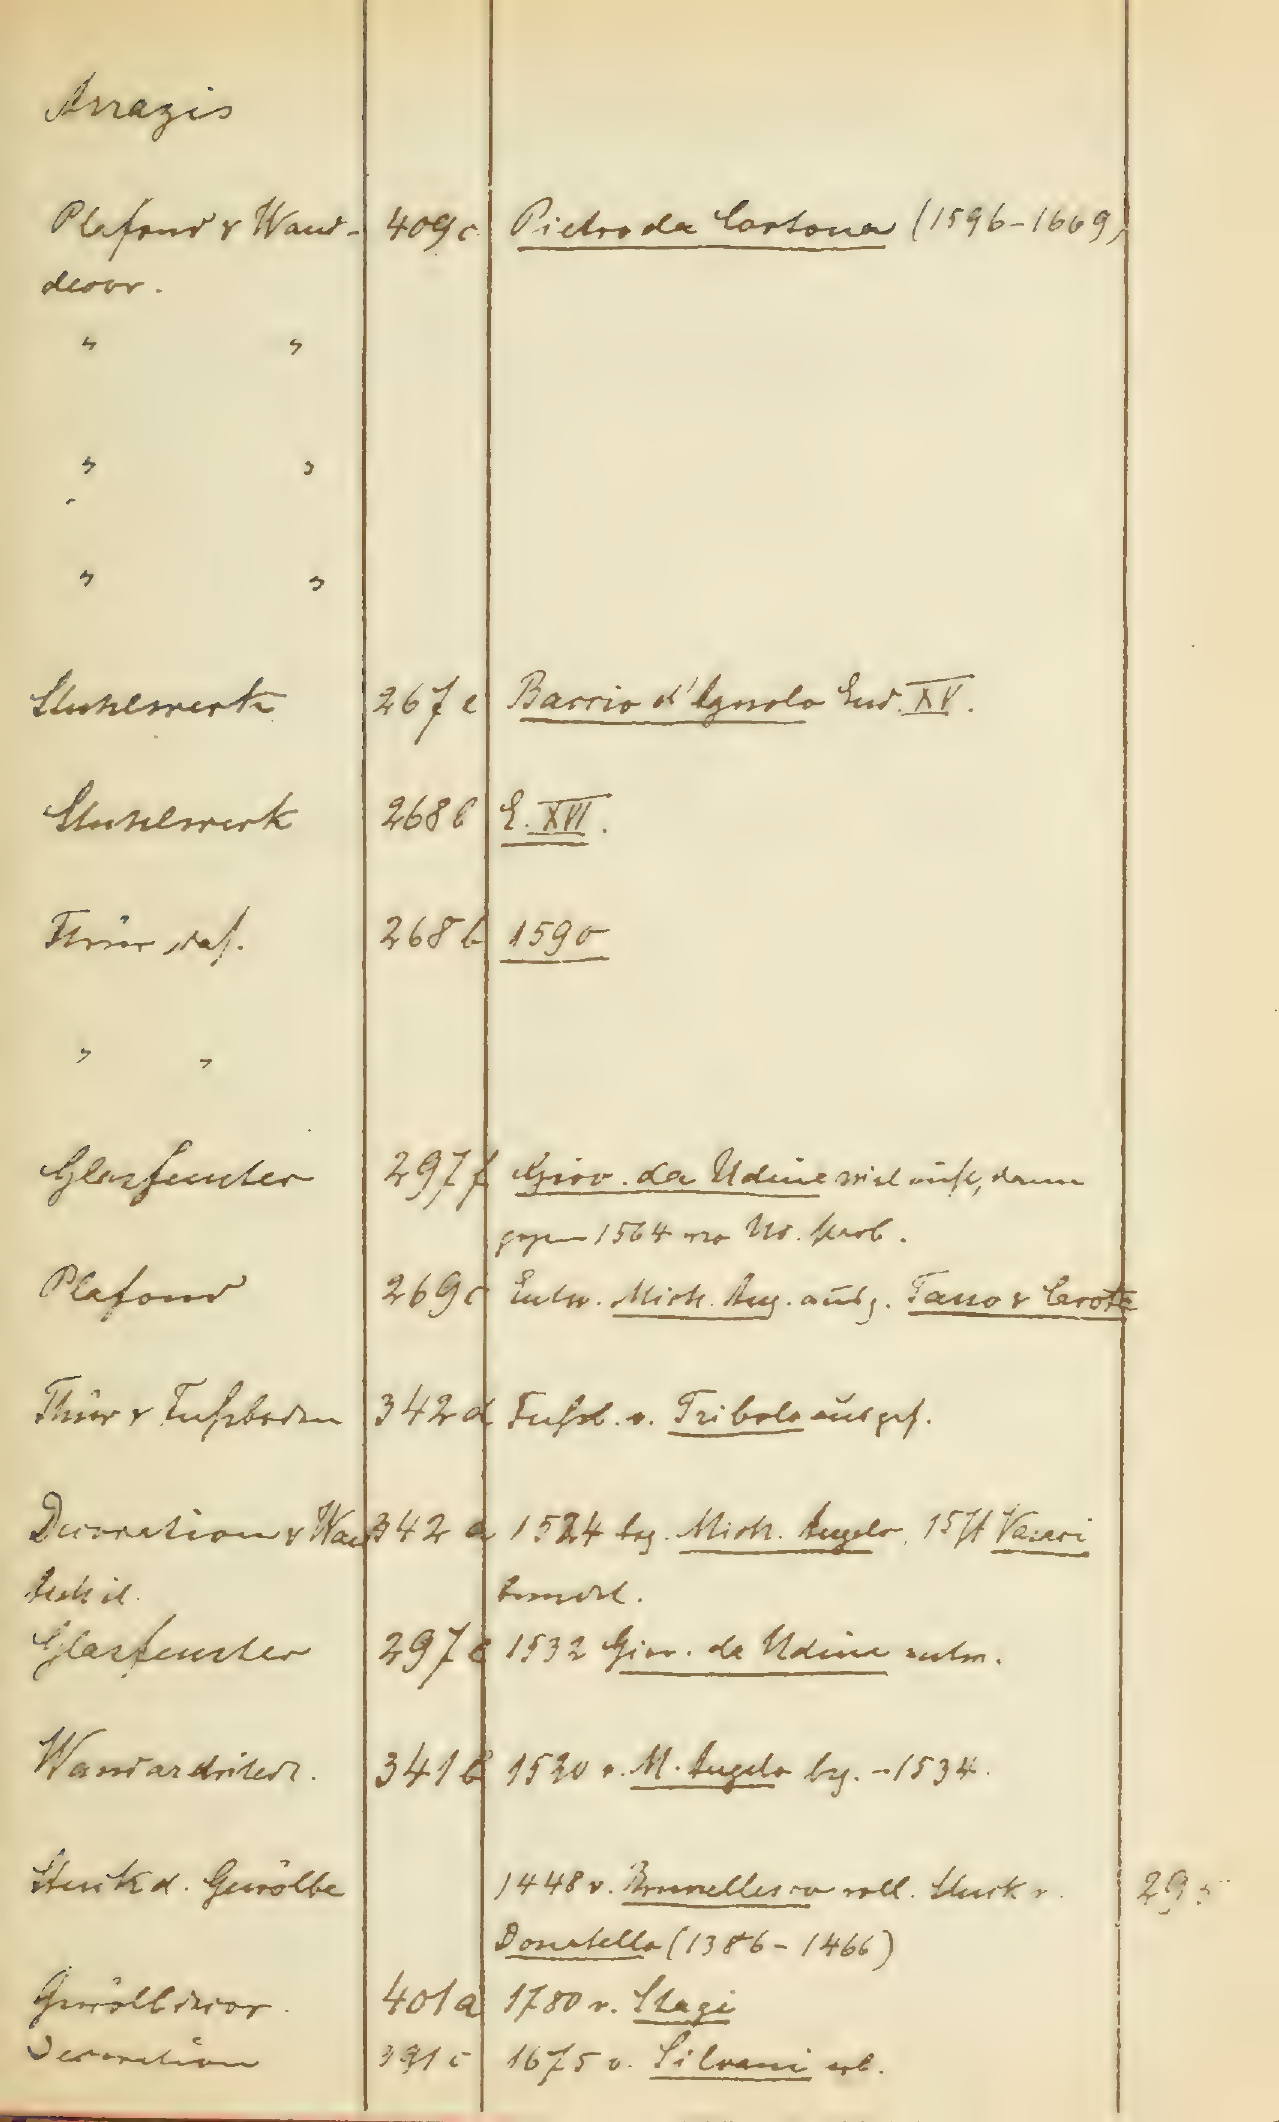 Arrazis
Plafond & Wand- 409c Pietro da Cortona (1596-1669)
decor.
" "
" "
" "
Stuhlwerk 267e Baccio d'Agnolo End. XV.
Stuhlwerk 268b E. XVI.
Thür, das. 268b 1590
" "
Glasfenster 297f Giov. da Udine dann
gegen 1564
Plafond 269c Entw. Mich. Ang. ausg. Tasso & Carota
Thür & Fussboden 342d Fussb. v. Tribolo ausgef.
Decoration & Wand 342a 1524 beg. Mich. Angelo, 1571 Vasari
Glasfenster 297e 1532 Giov. da Udine entw.
Wandarchitect. 341b 1520 v. M. Angelo beg. -1534.
Stuck d. Gewölbe 1448 v. Brunellesco voll. Stuck v.
Donatello (1386-1466)
Gewölbdecor. 401a 1780 v. Stagi
Decoration 391c 1675 v. Silvani erb.